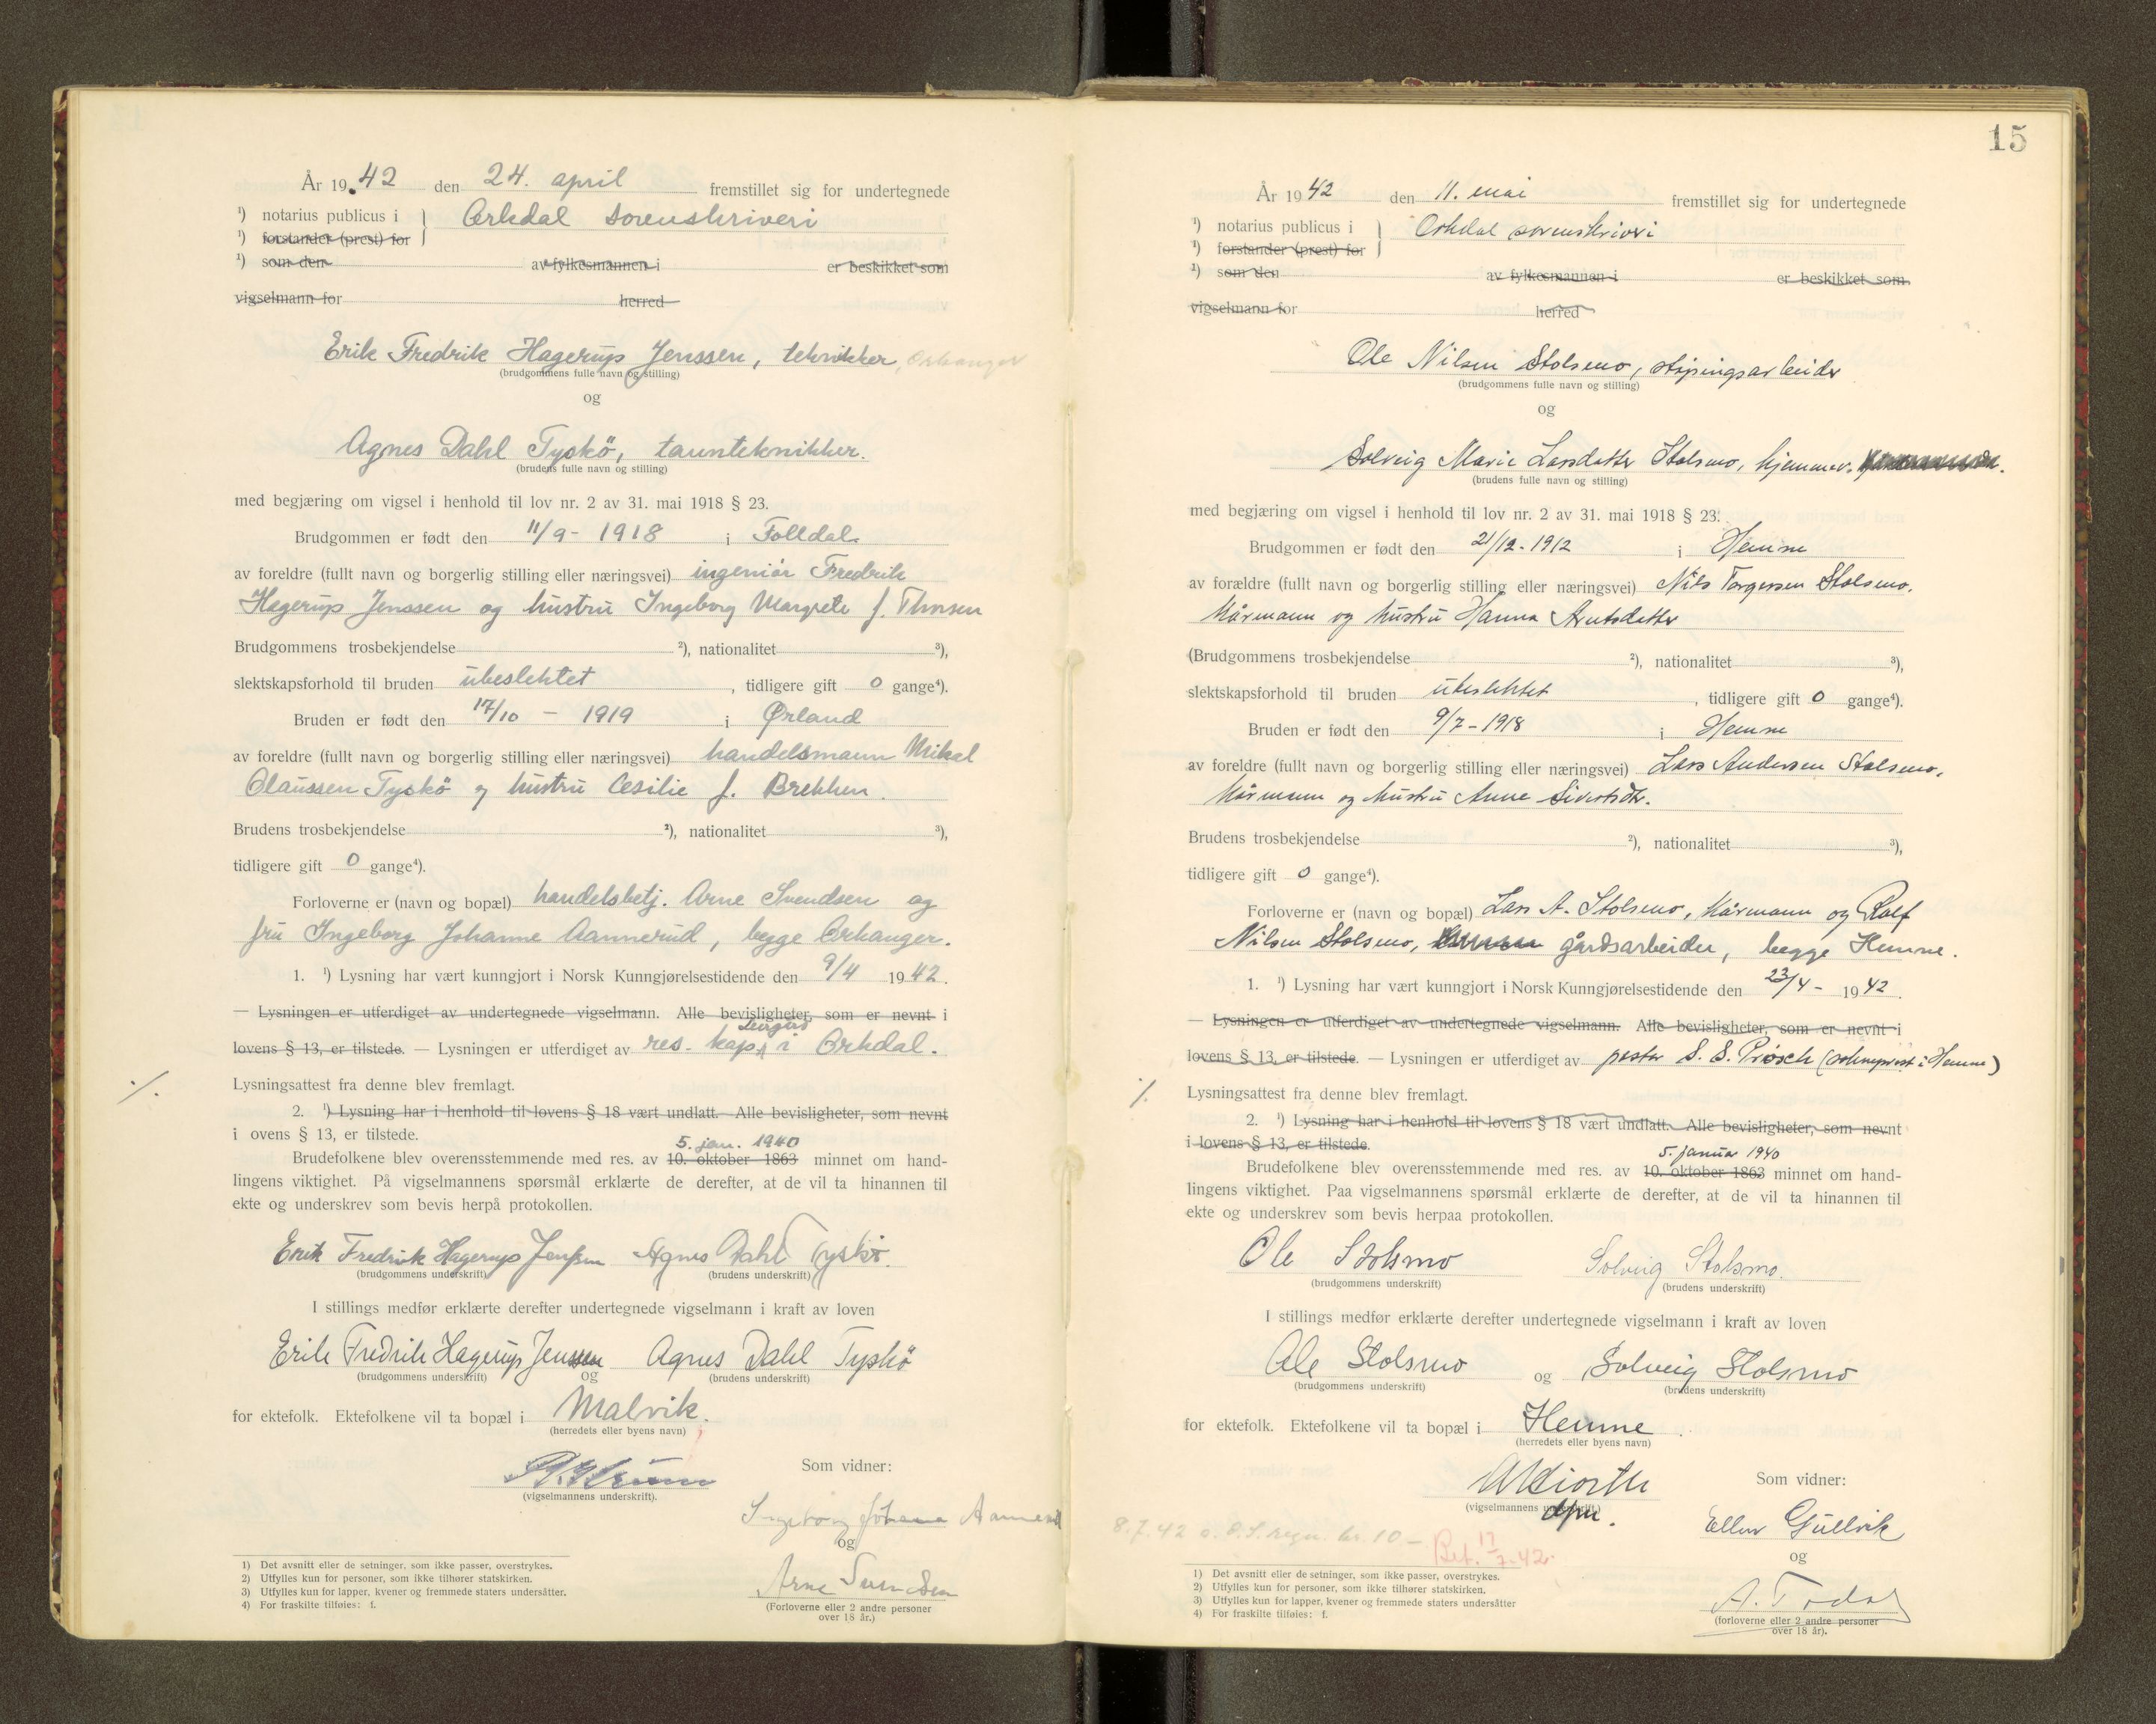 År 1942 den 24. april fremstillet sig for undertegnede
¹) notarius publicus i } Orkdal sorenskriveri
¹) forstander (prest) for
¹) som den av fylkesmannen i er beskikket som
vigselmann for herred
Erik Fredrik Hagerup Jenssen, tekniker, Orkanger
(brudgommens fulle navn og stilling)
og
Agnes Dahl Tyskö, tannteknikker.
(brudens fulle navn og stilling)
med begjæring om vigsel i henhold til lov nr. 2 av 31. mai 1918 § 23.
Brudgommen er født den 11/9 - 1918 i Folldal
av foreldre (fullt navn og borgerlig stilling eller næringsvei) ingeniør Fredrik
Hagerup Jenssen og hustru Ingeborg Margrete f. Thorsen
Brudgommens trosbekjendelse ²), nationalitet ³),
slektskapsforhold til bruden ubeslektet, tidligere gift 0 gange⁴).
Bruden er født den 17/10 - 1919 i Ørland
av foreldre (fullt navn og borgerlig stilling eller næringsvei) handelsmann Mikal
Olaussen Tyskö og hustru Cesilie f. Brekken.
Brudens trosbekjendelse ²), nationalitet ³),
tidligere gift 0 gange⁴).
Forloverne er (navn og bopæl) handelsbetj. Arne Svendsen og
fru Ingeborg Johanne Aannerud, begge Orkanger.
1. ¹) Lysning har vært kunngjort i Norsk Kunngjørelsestidende den 9/4 1942.
— Lysningen er utferdiget av undertegnede vigselmann. Alle bevisligheter, som er nevnt i
lovens § 13, er tilstede. — Lysningen er utferdiget av res. kap. i Orkdal.
Lysningsattest fra denne blev fremlagt.
./.
2. ¹) Lysning har i henhold til lovens § 18 vært undlatt. Alle bevisligheter, som nevnt
i ovens § 13, er tilstede.
5. jan. 1940
Brudefolkene blev overensstemmende med res. av 10. oktober 1863 minnet om hand-
lingens viktighet. På vigselmannens spørsmål erklærte de derefter, at de vil ta hinannen til
ekte og underskrev som bevis herpå protokollen.
Erik Fredrik Hagerup Jenssen Agnes Dahl Tyskö.
(brudgommens underskrift) (brudens underskrift)
I stillings medfør erklærte derefter undertegnede vigselmann i kraft av loven
Erik Fredrik Hagerup Jenssen og Agnes Dahl Tyskö
(brudgommens underskrift) (brudens underskrift)
for ektefolk. Ektefolkene vil ta bopæl i Malvik.
(herredets eller byens navn)
Som vidner:
(vigselmannens underskrift).
Ingeborg Johanne Aannerud
og
Arne Svendsen
(Forloverne eller 2 andre personer
over 18 år.)
1) Det avsnitt eller de setninger, som ikke passer, overstrykes.
2) Utfylles kun for personer, som ikke tilhører statskirken.
3) Utfylles kun for lapper, kvener og fremmede staters undersåtter.
4) For fraskilte tilføies: f.
15
År 1942 den 11. mai fremstillet sig for undertegnede
¹) notarius publicus i } Orkdal sorenskriveri
¹) forstander (prest) for
¹) som den av fylkesmannen i er beskikket som
vigselmann for herred
Ole Nilsen Stolsmo, støpingsarbeider
(brudgommens fulle navn og stilling)
og
Solveig Marie Larsdatter Stolsmo, hjemmev.
(brudens fulle navn og stilling)
med begjæring om vigsel i henhold til lov nr. 2 av 31. mai 1918 § 23.
Brudgommen er født den 21/12 - 1912 i Hemne
av forældre (fullt navn og borgerlig stilling eller næringsvei) Nils Torgersen Stolsmo,
kårmann og hustru Hanna Arntsdatter
(Brudgommens trosbekjendelse ²), nationalitet ³),
slektskapsforhold til bruden ubeslektet, tidligere gift 0 gange⁴).
Bruden er født den 9/7 - 1918 i Hemne
av foreldre (fullt navn og borgerlig stilling eller næringsvei) Lars Andersen Stolsmo,
kårmann og hustru Anne Sivertsdtr.
Brudens trosbekjendelse ²), nationalitet ³),
tidligere gift 0 gange⁴).
Forloverne er (navn og bopæl) Lars A. Stolsmo, kårmann og Rolf
Nilsen Stolsmo, gårdsarbeider, begge Hemne.
1. ¹) Lysning har vært kunngjort i Norsk Kunngjørelsestidende den 23/4 - 1942.
— Lysningen er utferdiget av undertegnede vigselmann. Alle bevisligheter, som er nevnt i
lovens § 13, er tilstede. — Lysningen er utferdiget av pastor S. S. Prøsch (sokneprest i Hemne)
./.
Lysningsattest fra denne blev fremlagt.
2. ¹) Lysning har i henhold til lovens § 18 vært undlatt. Alle bevisligheter, som nevnt
i lovens § 13, er tilstede.
5. januar 1940
Brudefolkene blev overensstemmende med res. av 10. oktober 1863 minnet om hand-
lingens viktighet. Paa vigselmannens spørsmål erklærte de derefter, at de vil ta hinannen til
ekte og underskrev som bevis herpaa protokollen.
Ole Stolsmo Solveig Stolsmo.
(brudgommens underskrift) (brudens underskrift)
I stillings medfør erklærte derefter undertegnede vigselmann i kraft av loven
Ole Stolsmo og Solveig Stolsmo
(brudgommens underskrift) (brudens underskrift)
for ektefolk. Ektefolkene vil ta bopæl i Hemne.
(herredets eller byens navn)
Som vidner:
(vigselmannens underskrift.)
Ellen Gullvik
og
A. Todal
(forloverne eller 2 andre personer
over 18 år).
8.7.42 kr. 10 - Bet. 17/7-42.
1) Det avsnitt eller de setninger, som ikke passer, overstrykes.
2) Utfylles kun for personer, som ikke tilhører statskirken.
3) Utfylles kun for lapper, kvener og fremmede staters undersåtter
4) For fraskilte tilføies: f.